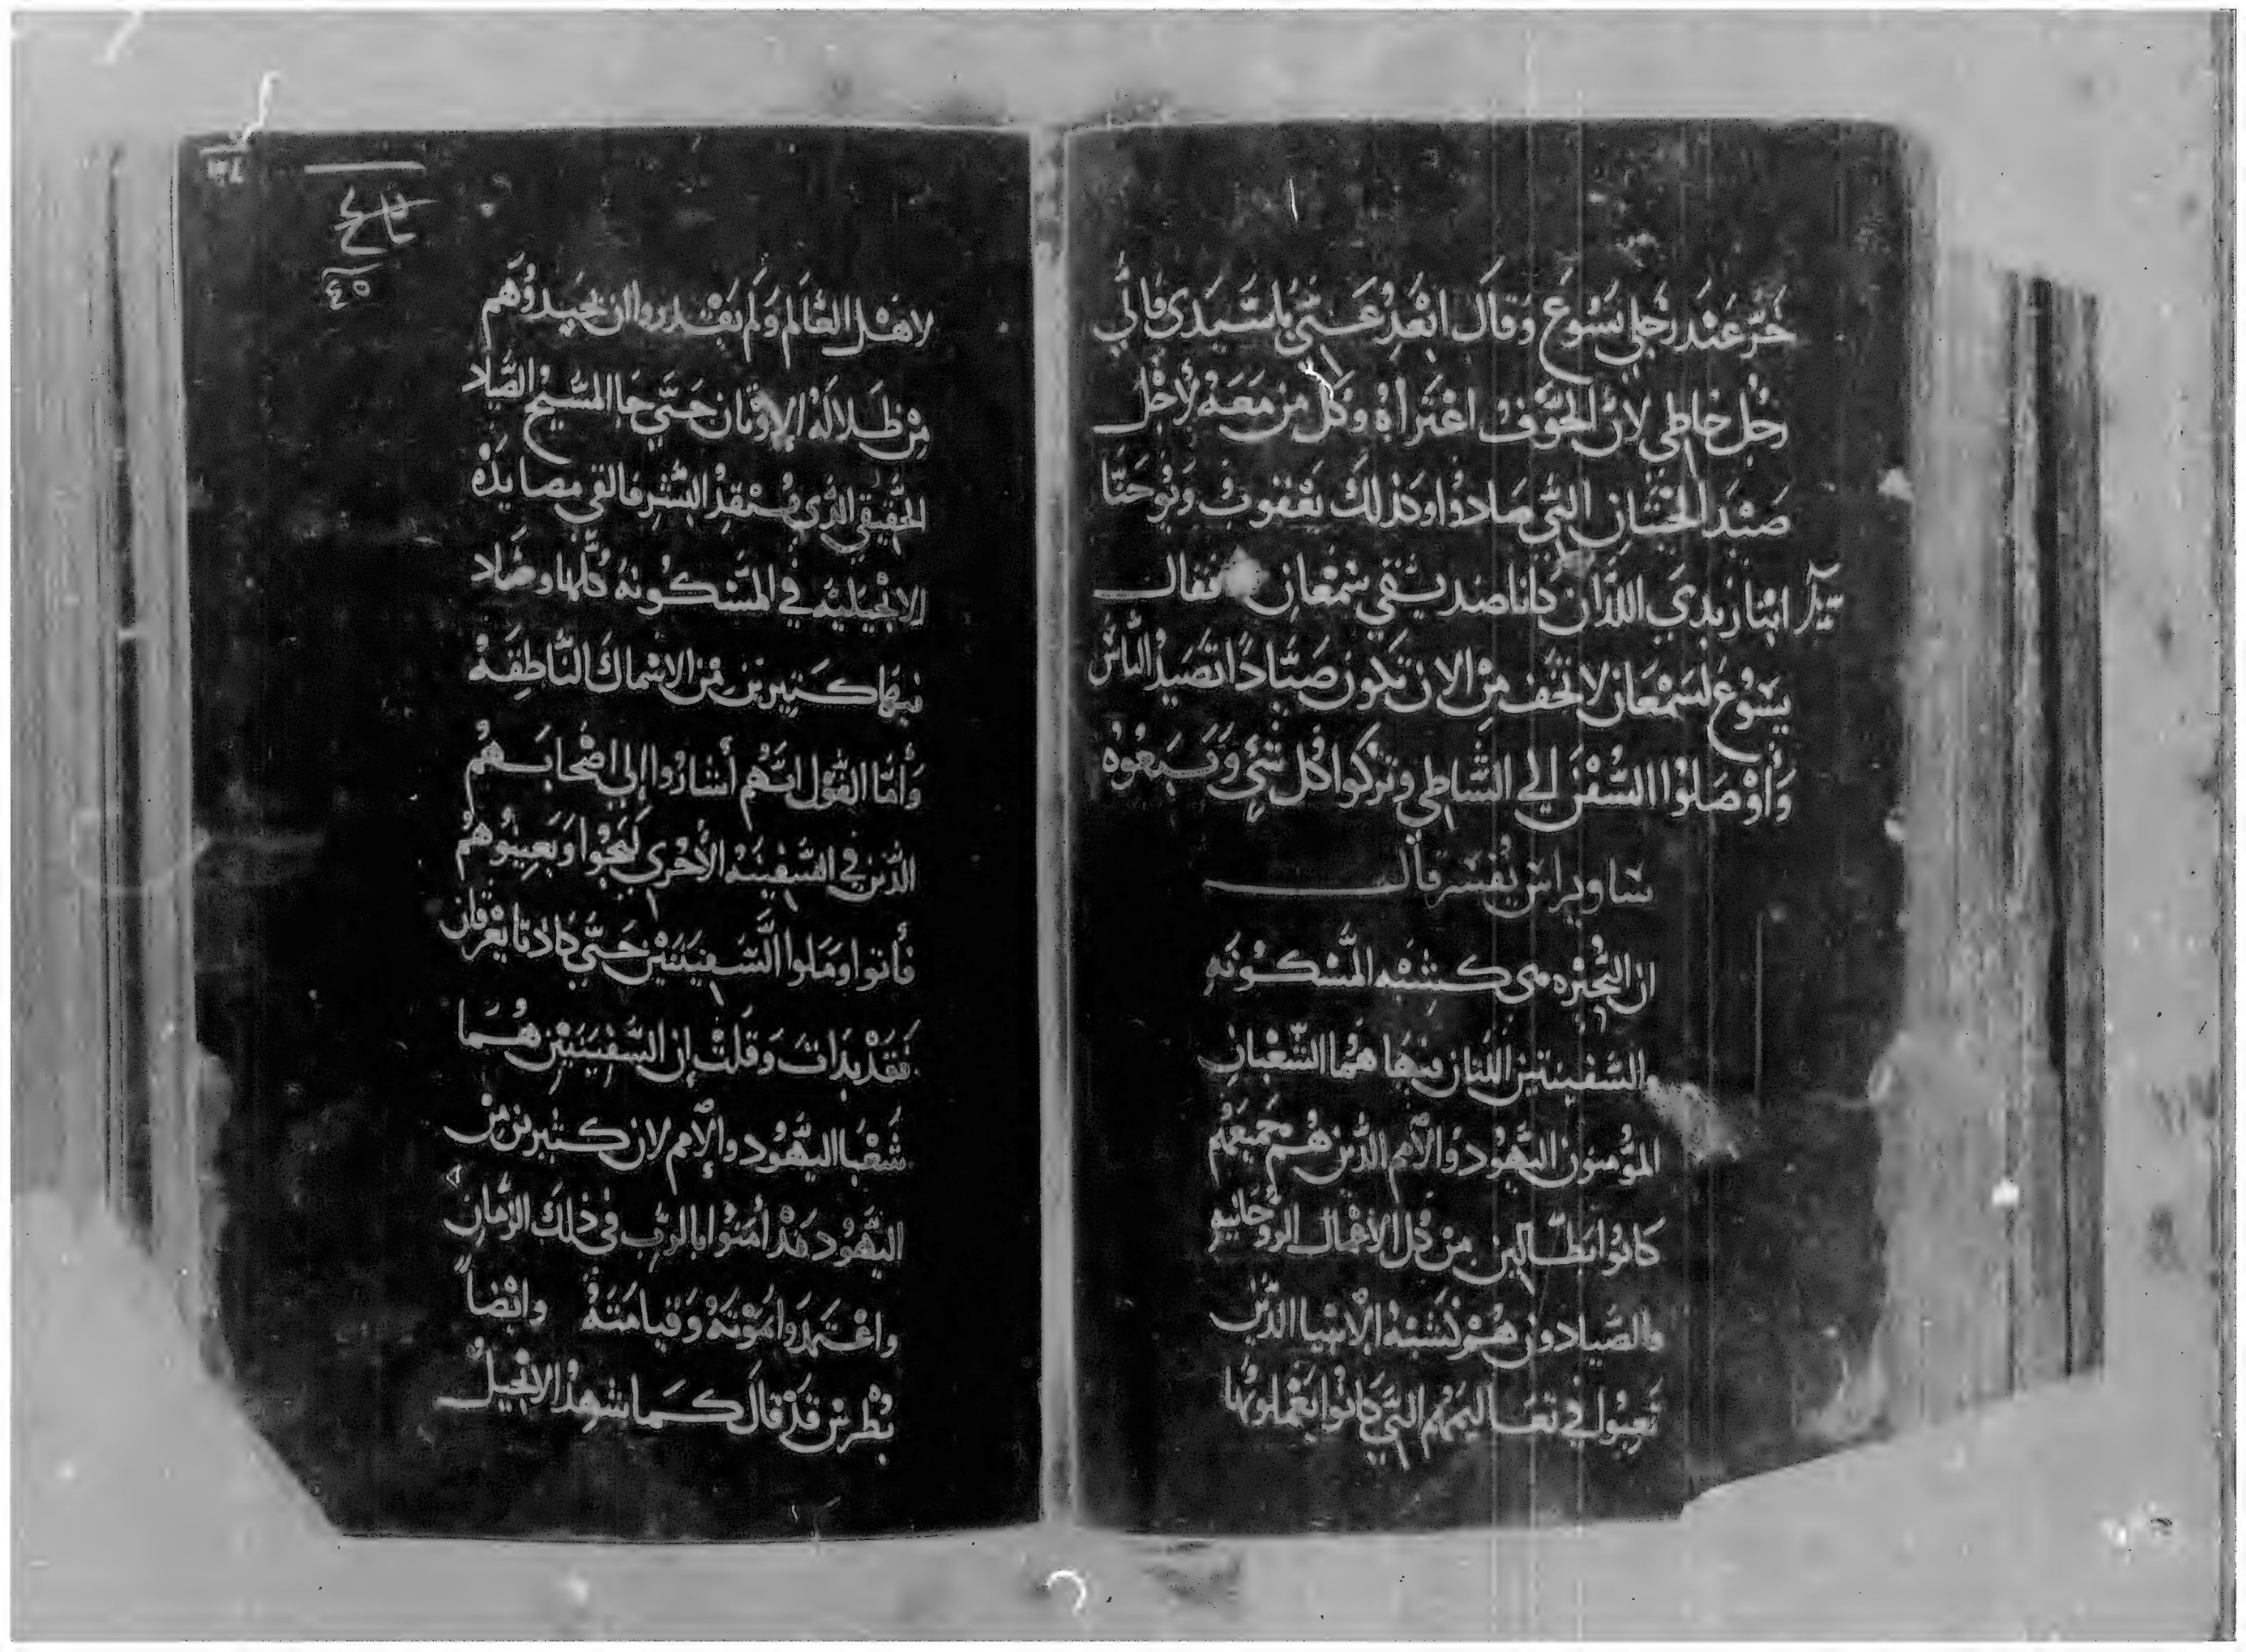 خَرَّ عَنْدَ رِجْلَي يَسُوعَ وَقَالَ ابْعِدْ عَنّي يا سَيّدي فاني
رجل خاطي لان الخَوْفُ اعْتَراهُ وكُل من مَعَهُ لأجْل
صَيْدَ الحيتان التي صادوا وكذلك يَعْقوبْ ويُوحَنّا
ابنا زبدي اللذان كانا صديقي سمْعان فقال
يسَوُع لسَمْعان لا تخَف مِنْ الان تكون صَيّادًا تصَيدُ الناسْ
وَأوْصَلوُا السُفْنَ الي الشاطي وتَركوا كُل شيْ وَتَبَعوُه
ساويرس نفسه قال
ان البُحَيْره هى كشبْه المسْكوُنَه
والسَفينتين اللتان فيها هُما الشَعْبان
المؤمنون اليَهوُد والأمم الذين هُم جميعهُم
كانوُا بطّالين من كُل الاعْمال الروُحانيه
والصَيادون هُم كَشبْهُ الأنبيا الذين
تعبوا في تعَاليمَهُم التي كانوُا يَعْملونها
٣٤
تاسع
٤٥
لاهْل العَالم وَلم يَقْدروا ان يصَيدوُهم
مِنْ ظَلالَةُ الاوْثان حَتّي جا المسَيح الصّياد
الحَقيقي الذي يُنقِذْ البَشر فالقي مصايدْه
الانْجيليَه في المسْكوُنهُ كُلها وصَاد
فيها كثيرين مْن الاسْماك الناطِقَةْ
وَأمّا القَوْل انَهُم أشاروُا إلي اصْحابَهُم
الذين في السَفينَهْ الأخْري ليَجُوا وَيَعينوُهمُ
فأتوا ومَلوا السَفينَتَيْن حَتّي كادتا يَغْرقان
فَقَدْ بَدات وَقلتْ إن السَفينَتَيْن هُمَا
شعْبا اليَهُود والأمم لان كثيرين مِنْ
اليَهُود قَدْ أمَنوُا بالرَب في ذلك الزمَان
واعْتمَدوا بمَوْتهُ وَقيامَتهُ وايْضاً
بُطْرسْ قَدْ قال كمَا شهِدْ الانجيل